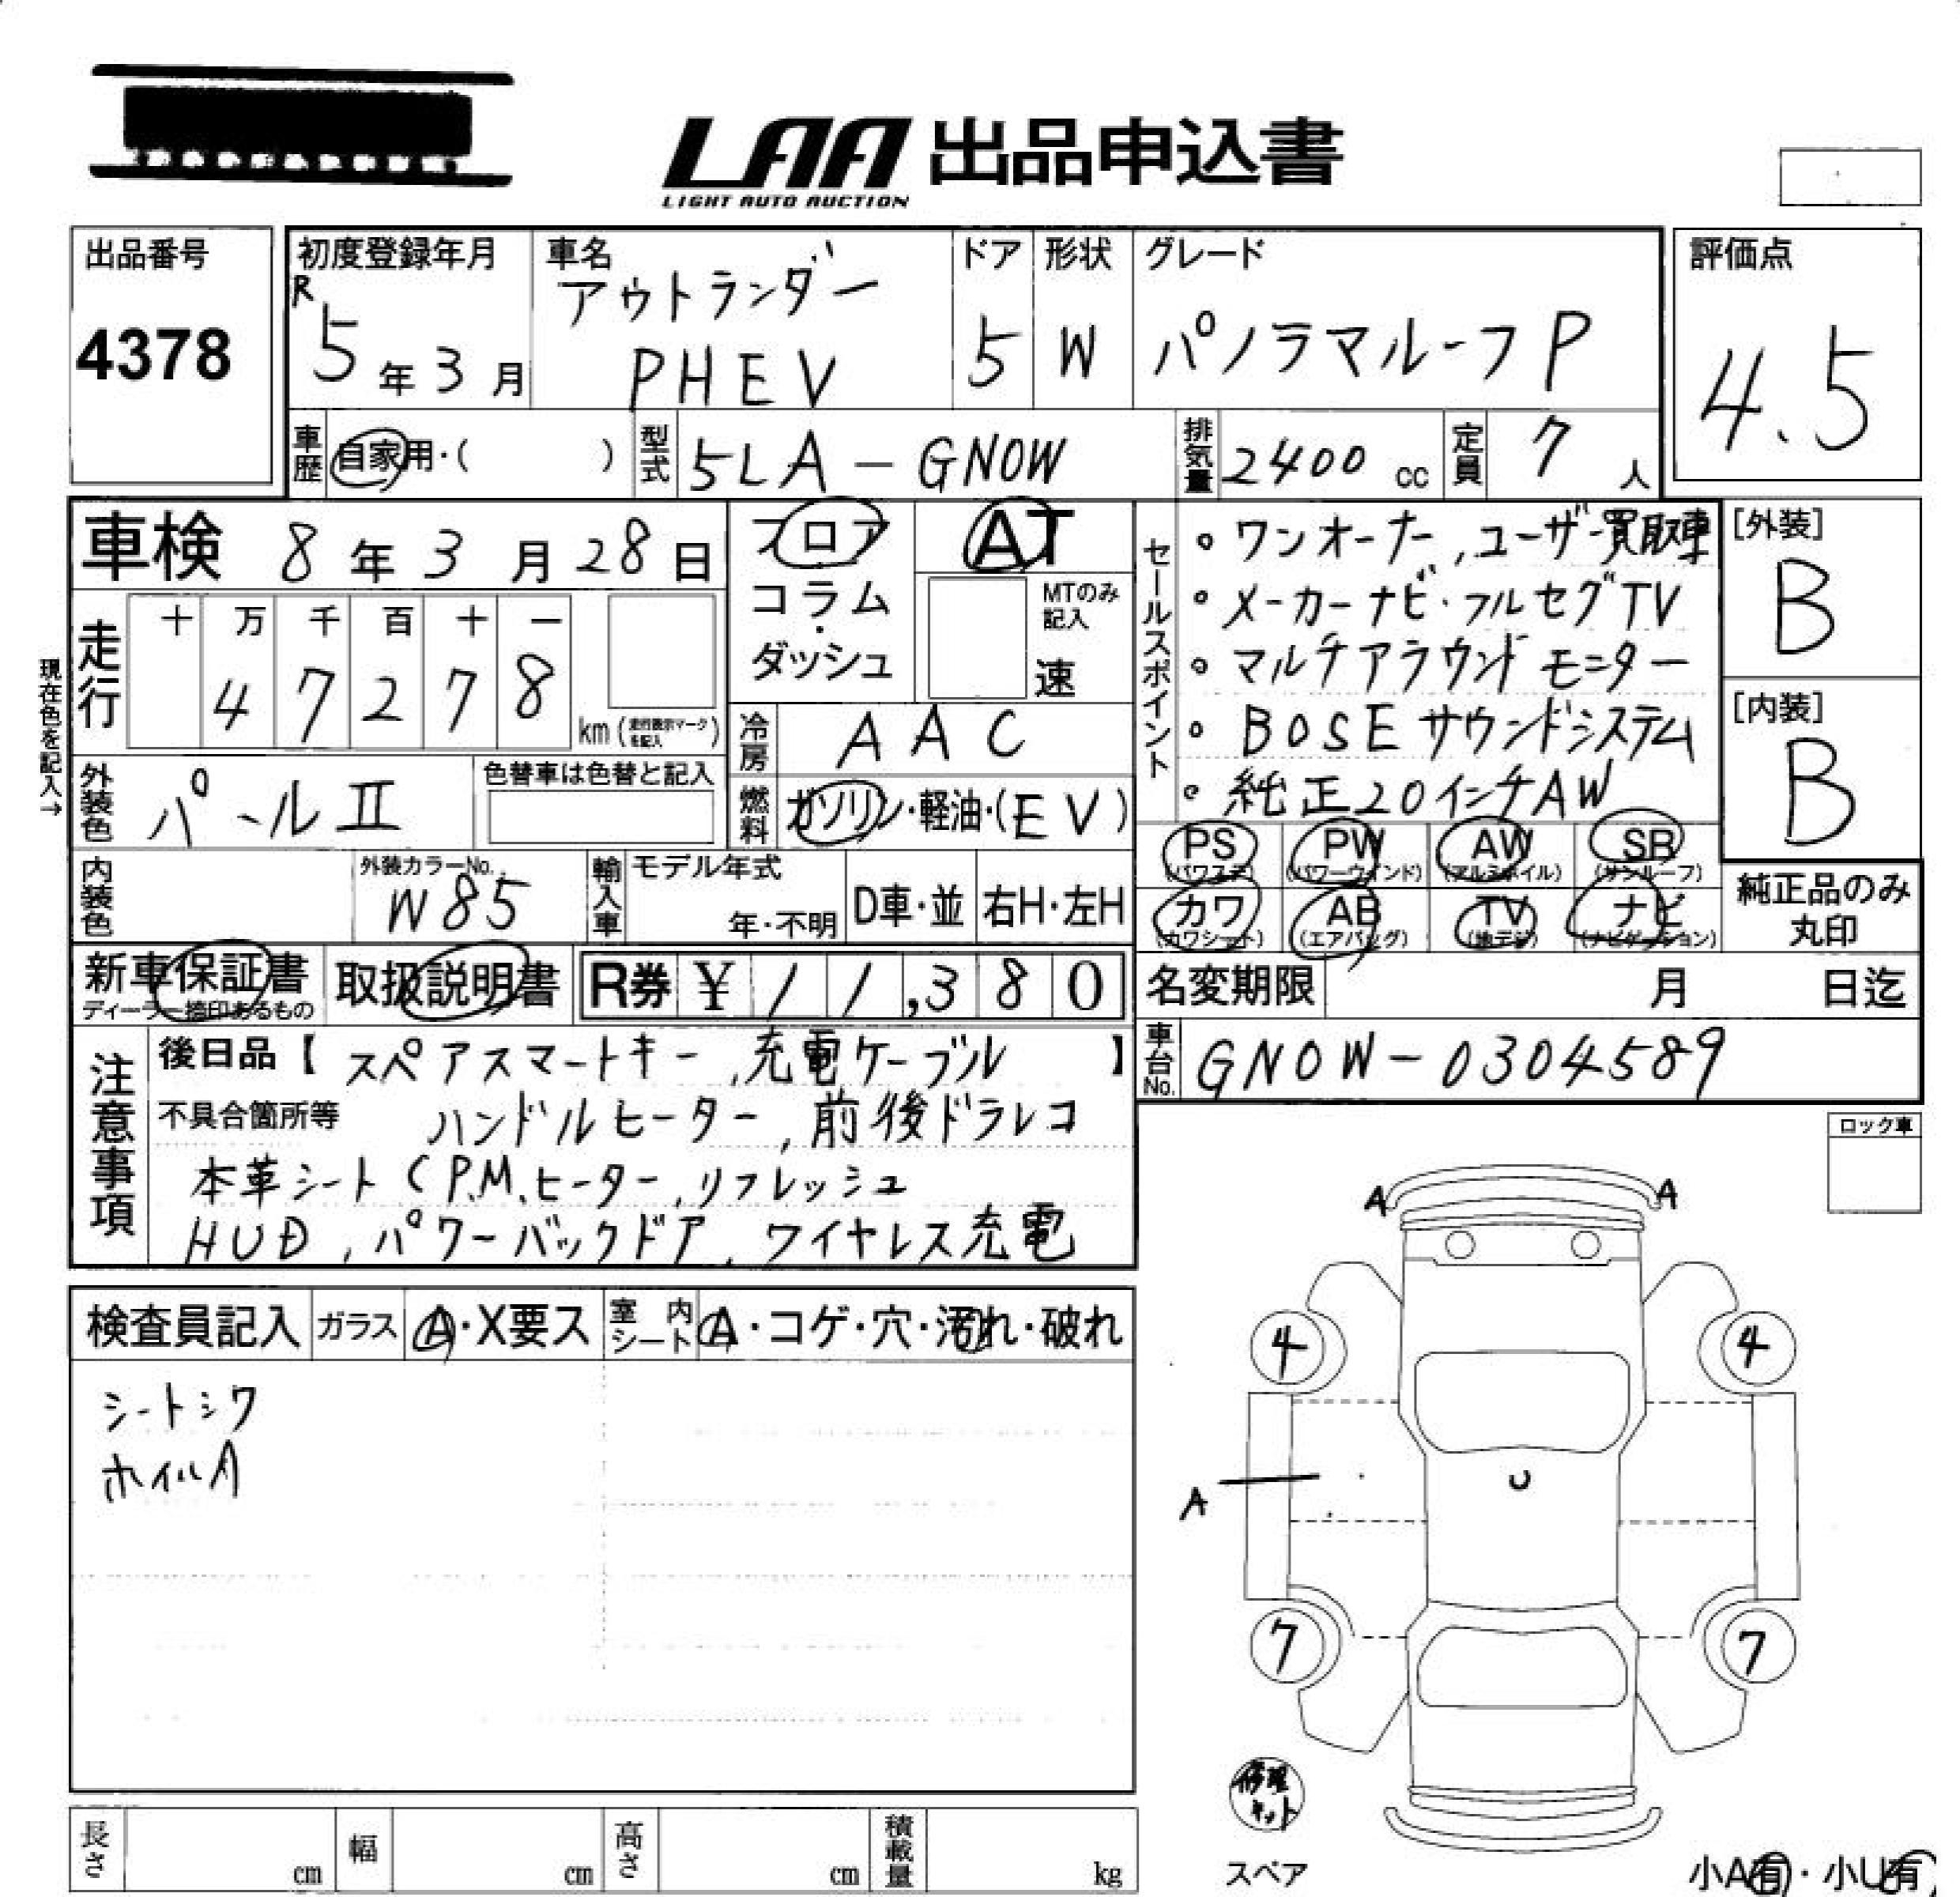 LAA 出品申込書
LIGHT AUTO AUCTION
出品番号
4378
初度登録年月
R
5年3月
車名
アウトランダー
PHEV
ドア
5
形状
W
グレード
パノラマルーフP
評価点
4.5
車歴
自家用・( )
型式
5LA-GN0W
排気量
2400 cc
定員
7人
車検 8年3月28日
フロア
コラム・ダッシュ
AT
MTのみ記入
速
走行
十 万 千 百 十 一
4 7 2 7 8
km (走行表示マークを記入)
現在色を記入→
冷房
AAC
外装色
パールⅡ
色替車は色替と記入
燃料
ガソリン・軽油・(EV)
内装色
外装カラーNo.
W85
輸入車
モデル年式
年・不明
D車・並
右H・左H
セールスポイント
・ワンオーナー,ユーザー買取車
・メーカーナビ・フルセグTV
・マルチアラウンドモニター
・BOSEサウンドシステム
・純正20インチAW
[外装]
B
[内装]
B
PS (パワステ)
PW (パワーウインド)
AW (アルミホイル)
SR (サンルーフ)
カワ (カワシート)
AB (エアバッグ)
TV (地デジ)
ナビ (ナビゲーション)
純正品のみ
丸印
新車保証書
ディーラー捺印あるもの
取扱説明書
R券 ¥11,380
名変期限 月 日迄
車台No.
GN0W-0304589
注意事項
後日品【スペアスマートキー,充電ケーブル】
不具合箇所等 ハンドルヒーター,前後ドラレコ
本革シート(P.M.ヒーター,リフレッシュ
HUD,パワーバックドア,ワイヤレス充電
ロック車
検査員記入
ガラス
A・X要ス
室内シート
A・コゲ・穴・汚れ・破れ
シートシワ
ホイルA
A A
4 4
A
7 7
修理キット
スペア
小A有・小U有
長さ cm
幅 cm
高さ cm
積載量 kg